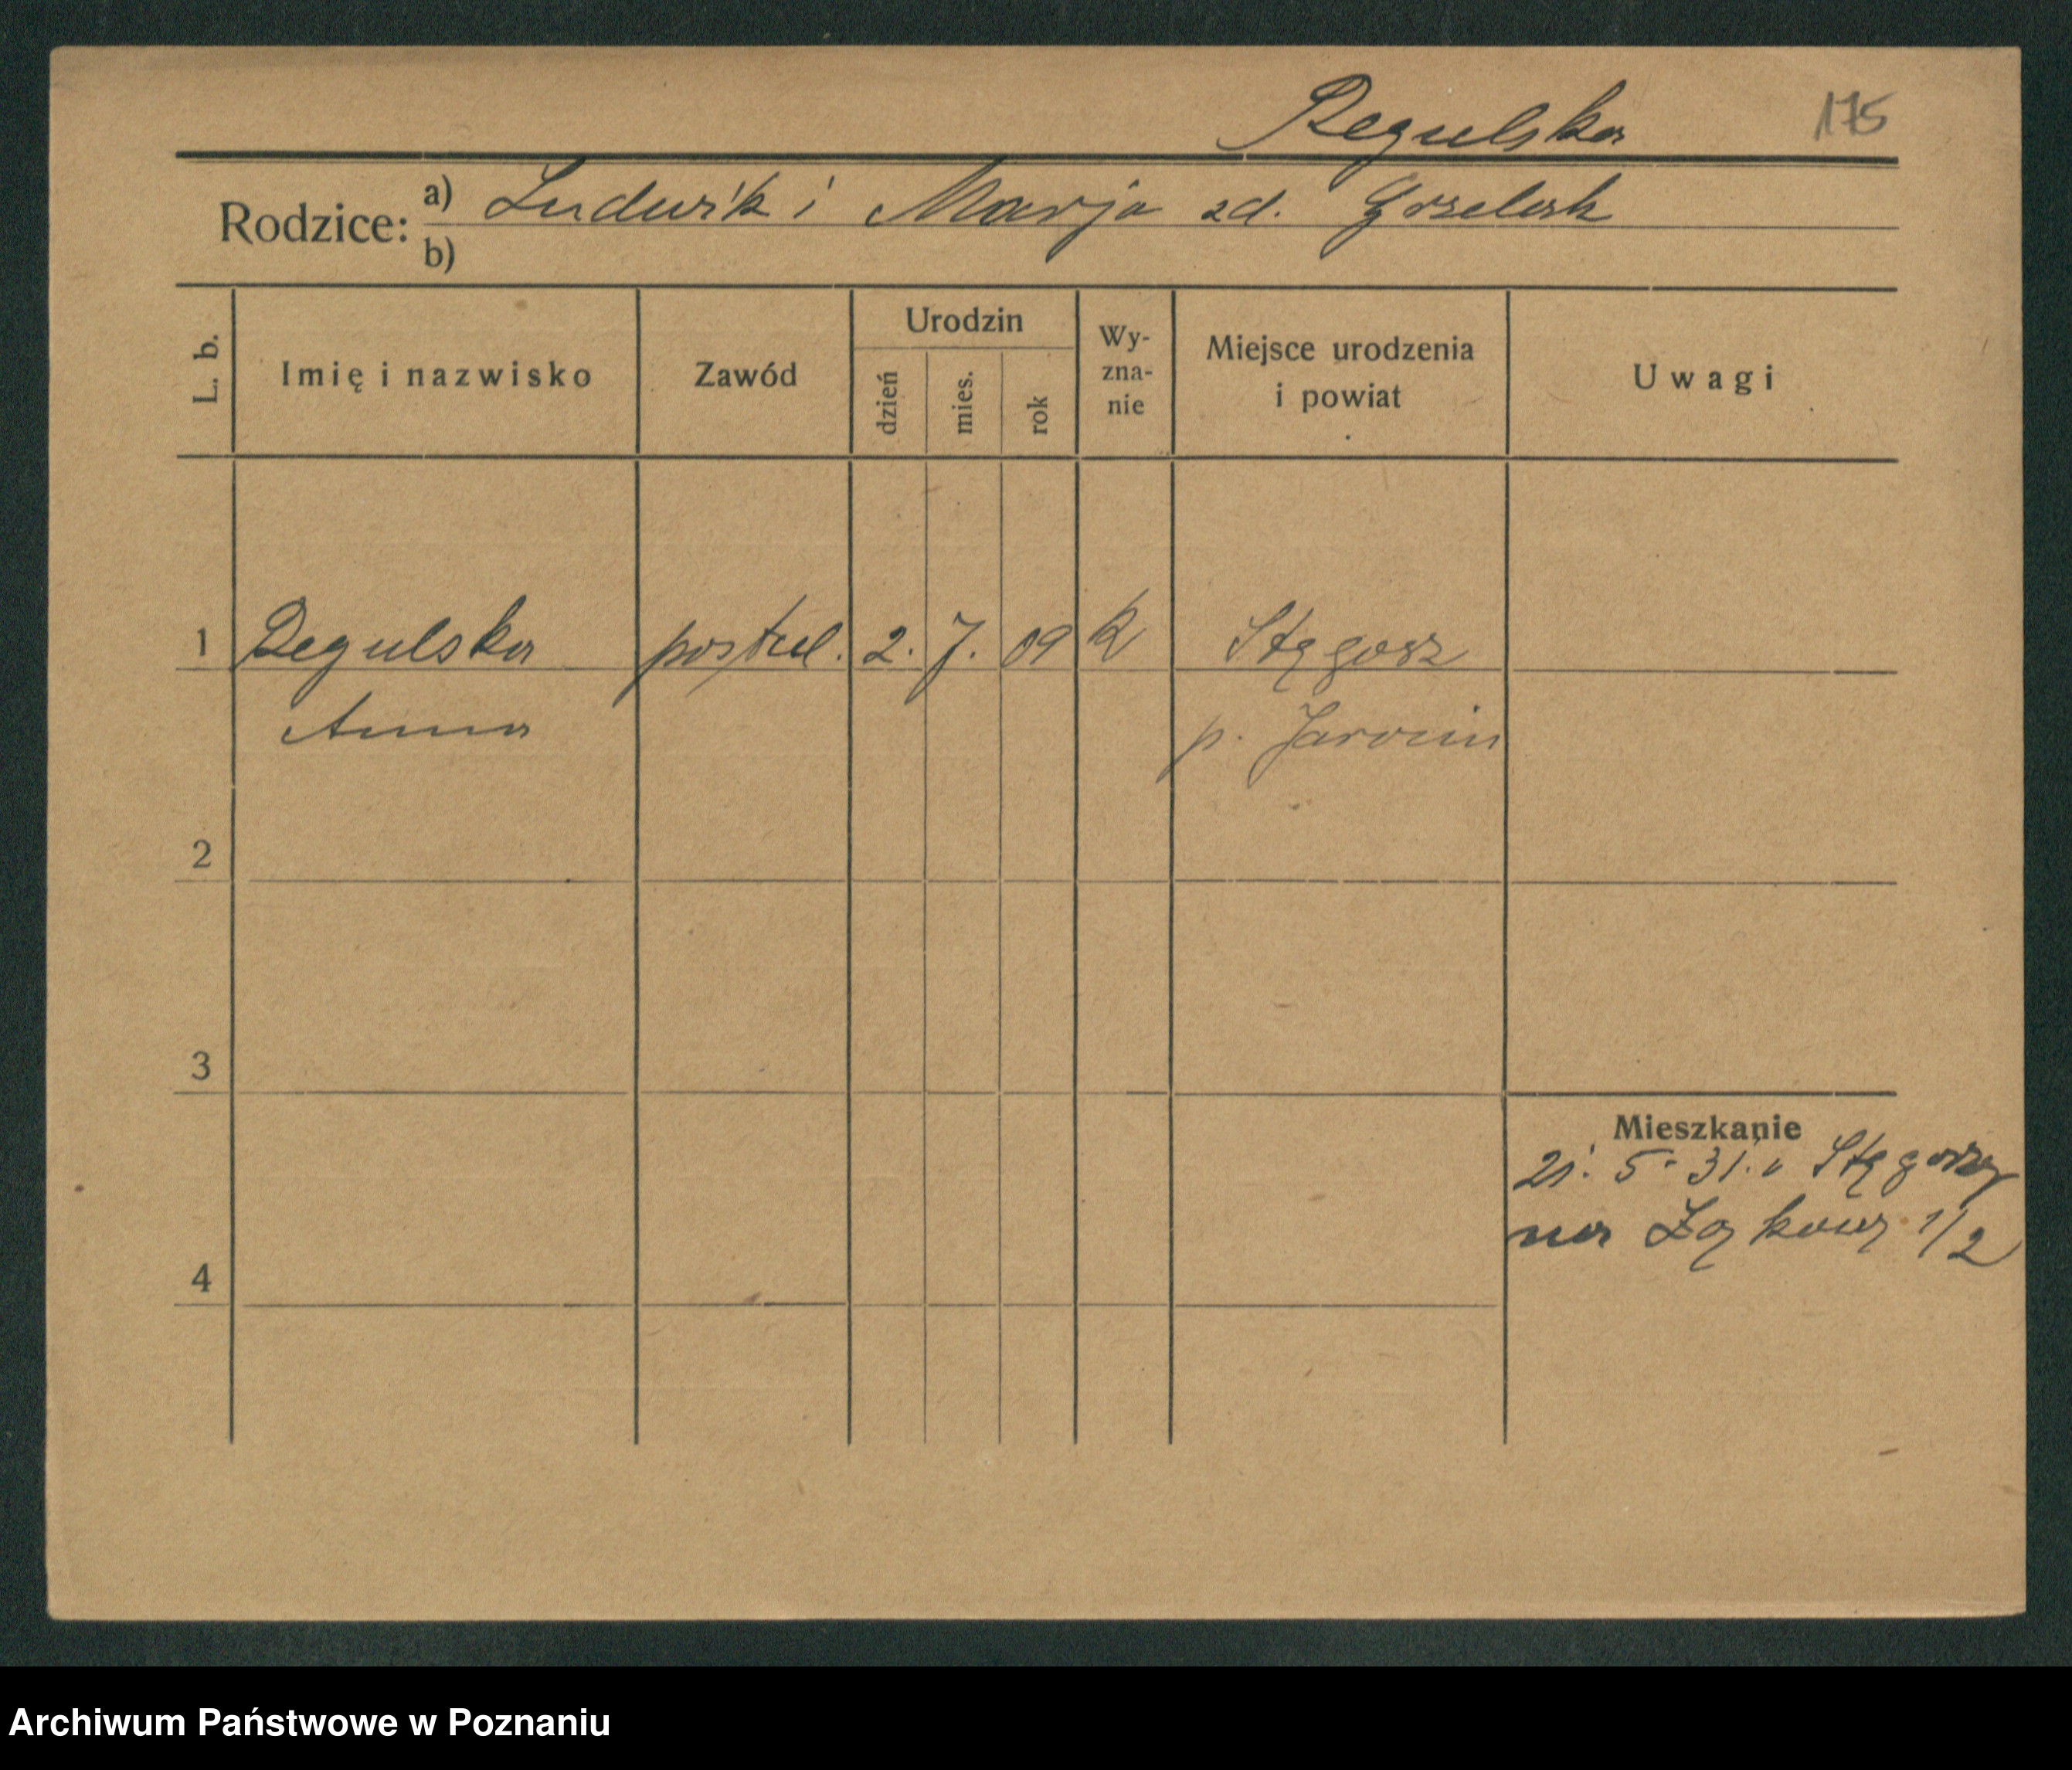 Regulska
175
Rodzice: a) Ludwik i Marja zd. Grzelak
b)
L. b. Imię i nazwisko Zawód Urodzin dzień mies. rok Wy-zna-nie Miejsce urodzenia i powiat Uwagi
1 Regulska 2. 7. 09 k Stęgosz
Anna p. Jarocin
2
3
Mieszkanie
21. 5. 31. z Stęgoszy
na 1/2
4
Archiwum Państwowe w Poznaniu